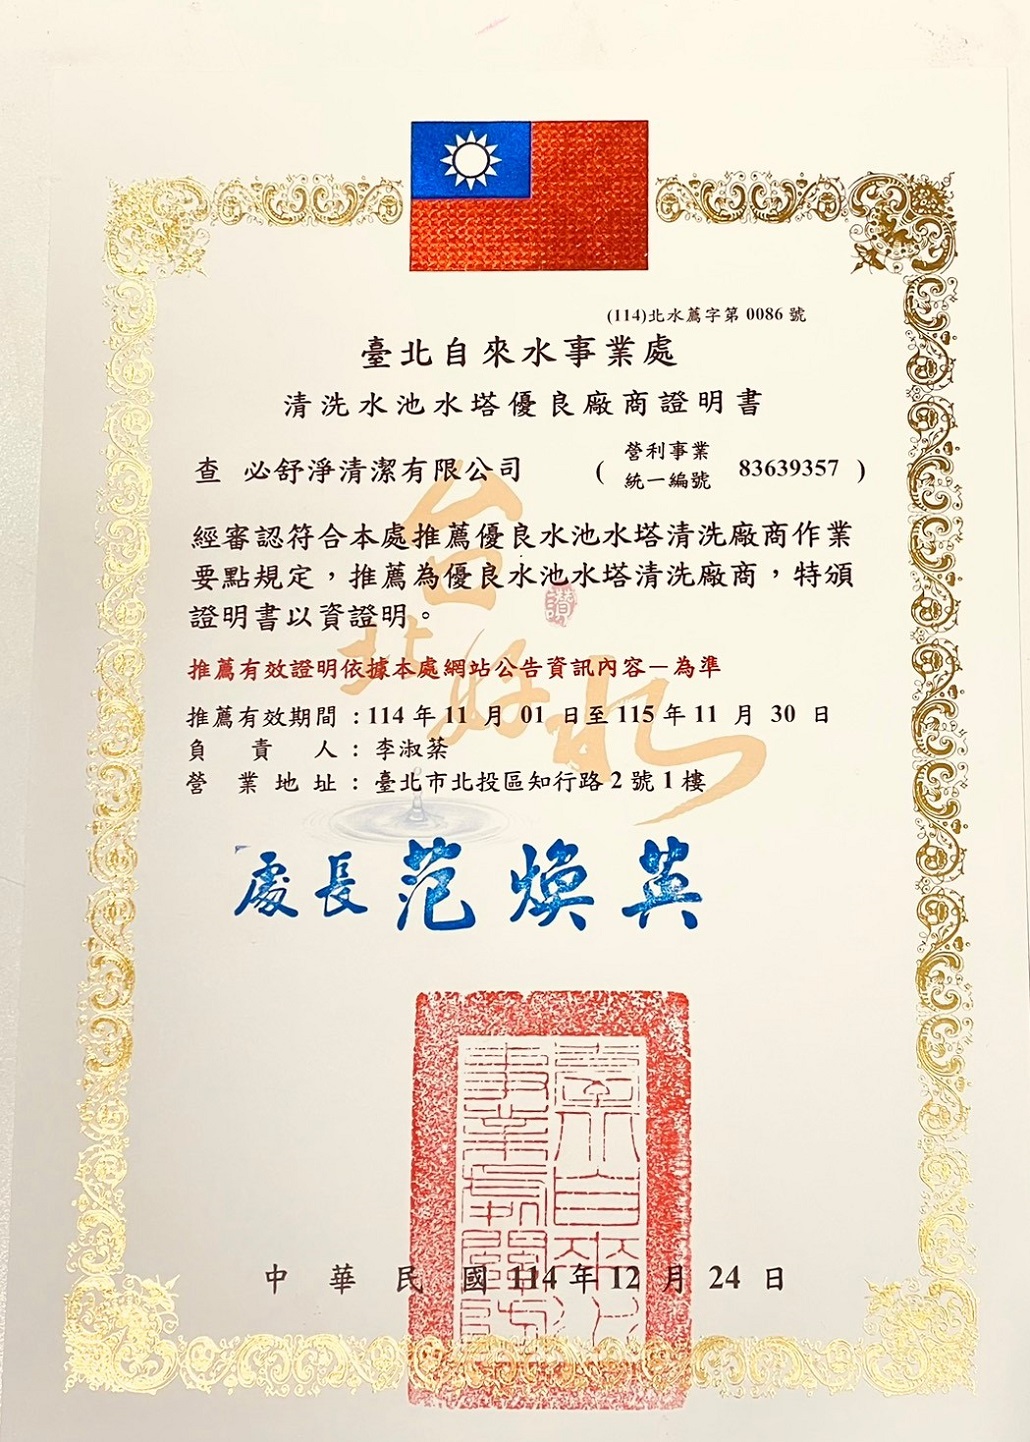 (114)北水薦字第 0086 號
臺北自來水事業處
清洗水池水塔優良廠商證明書
查 必舒淨清潔有限公司 ( 營利事業統一編號 83639357 )
經審認符合本處推薦優良水池水塔清洗廠商作業
要點規定，推薦為優良水池水塔清洗廠商，特頒
證明書以資證明。
推薦有效證明依據本處網站公告資訊內容－為準
推薦有效期間：114 年 11 月 01 日至 115 年 11 月 30 日
負責人：李淑棻
營業地址：臺北市北投區知行路 2 號 1 樓
台北好水
讚
處長 范煥英
中華民國 114 年 12 月 24 日